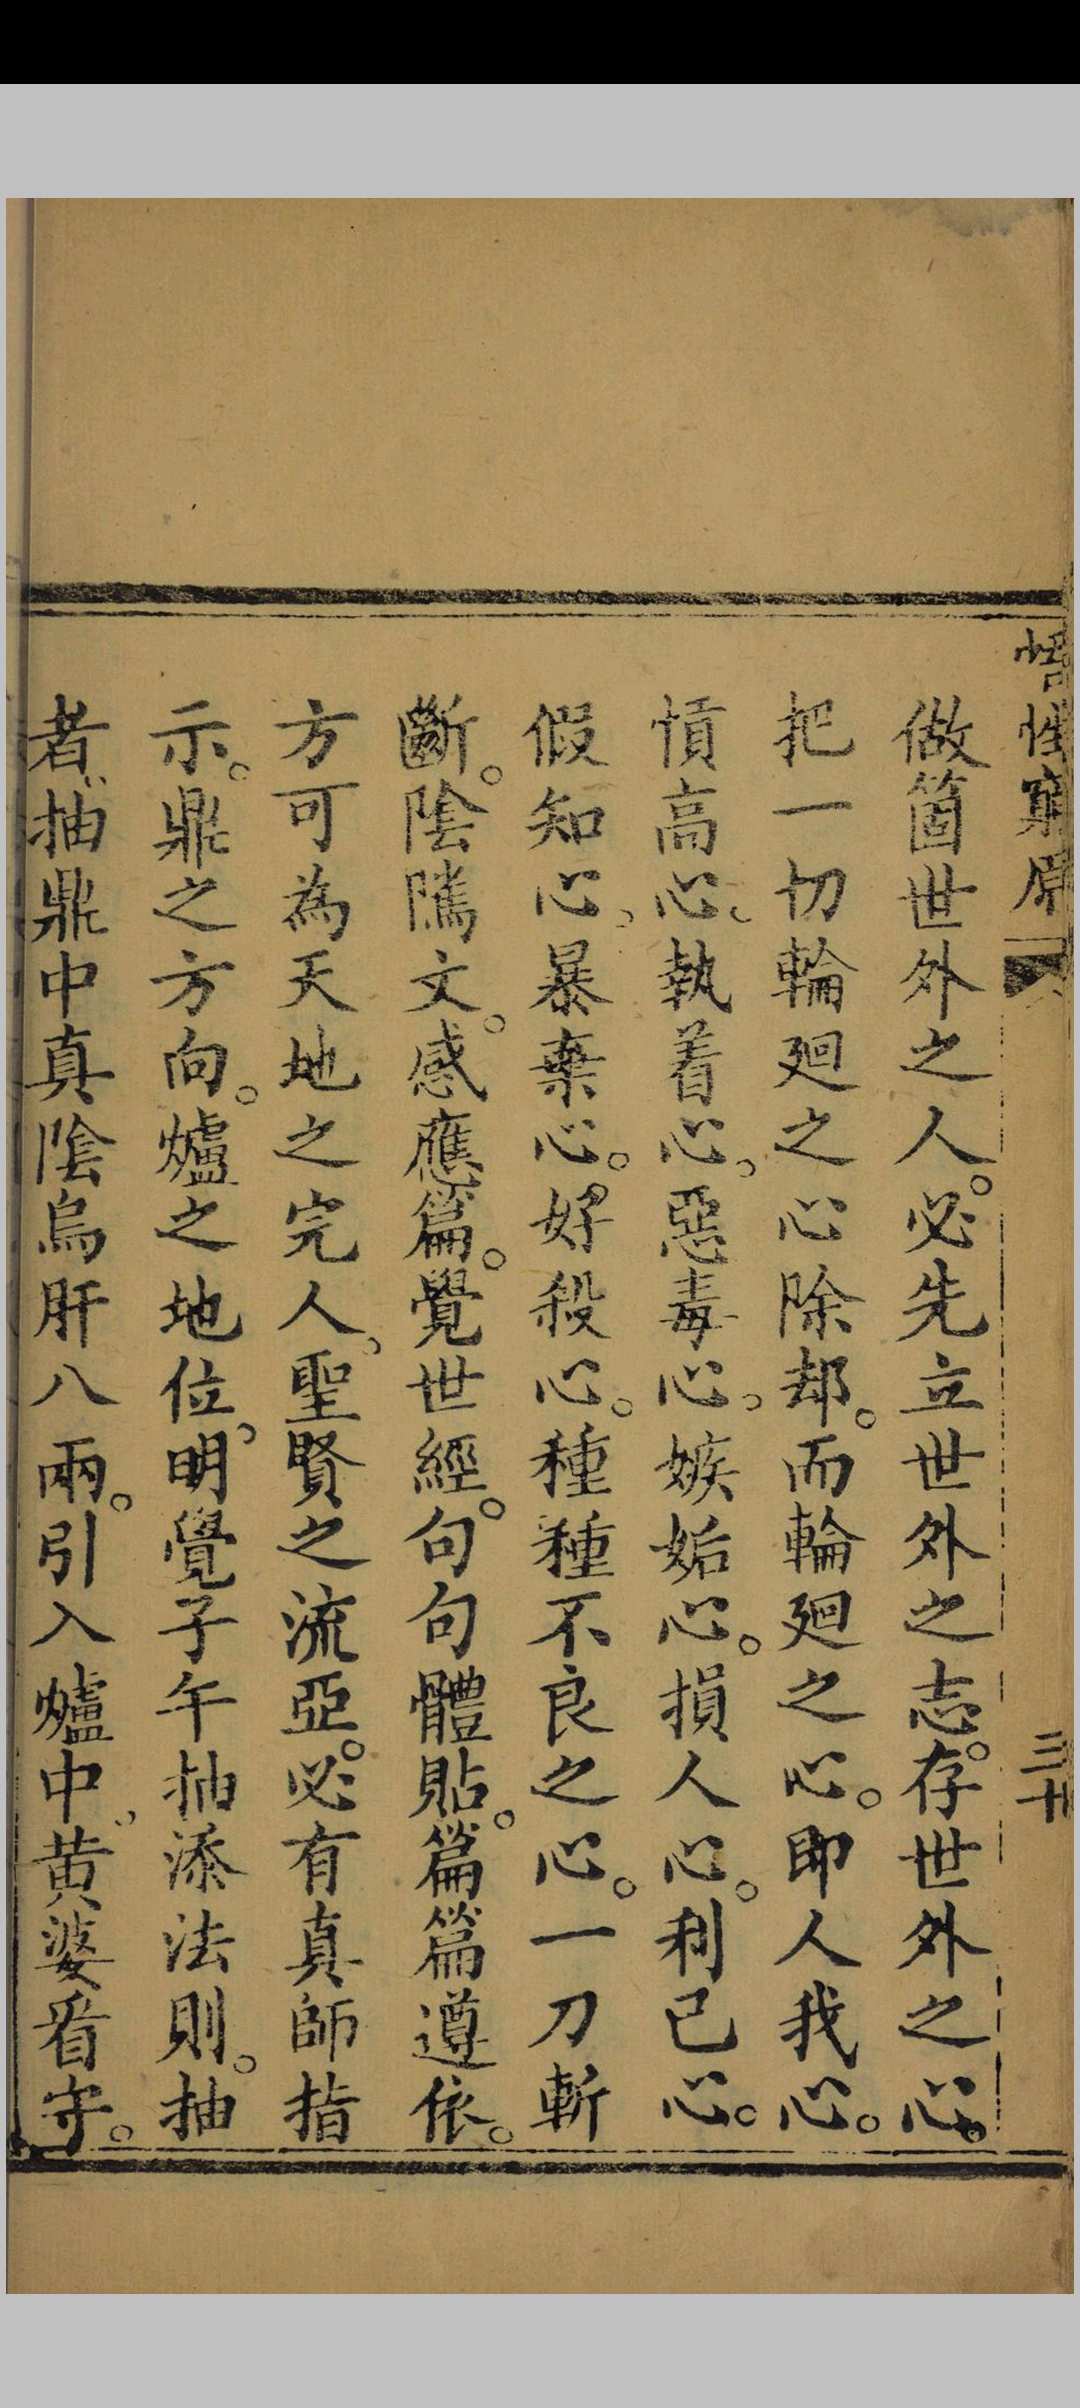 悟性窮原
三十
做箇世外之人。必先立世外之志。存世外之心。
把一切輪廻之心除却。而輪廻之心。即人我心。
憤高心、執着心、惡毒心、嫉妬心。損人心。利己心。
假知心、暴棄心。好殺心。種種不良之心。一刀斬
斷。陰隲文。感應篇。覺世經。句句體貼。篇篇遵依。
方可為天地之完人、聖賢之流亞。必有真師指
示。鼎之方向。爐之地位、明覺子午抽添法則。抽
者、抽鼎中真陰烏肝八兩。引入爐中、黄婆看守。